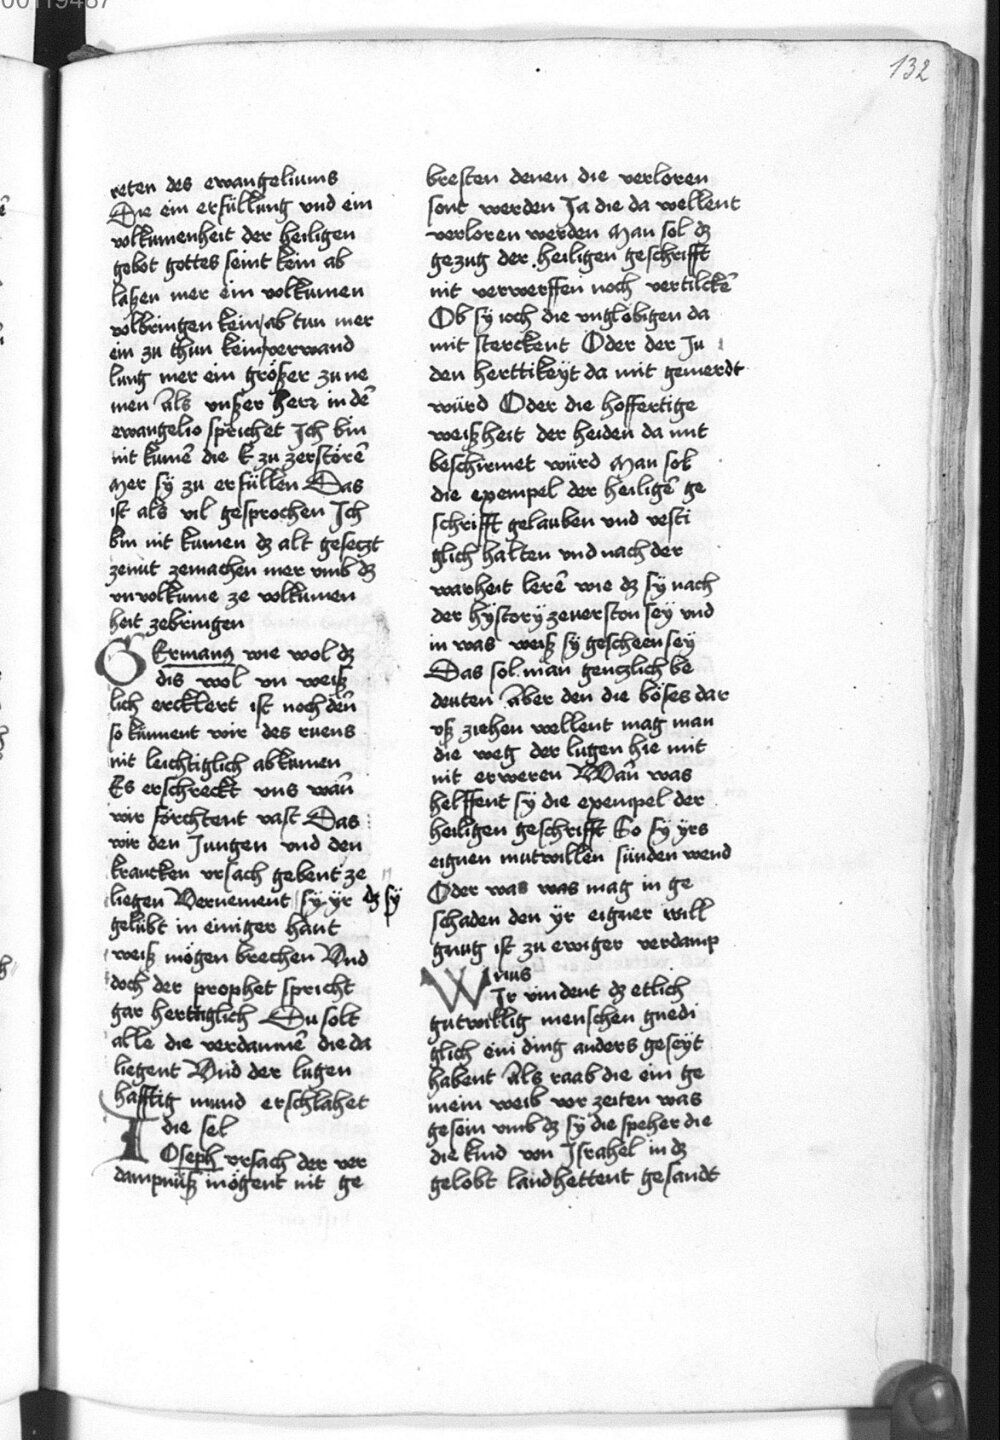 00119487
132
reten des ewangeliums
Die ein erfüllung vnd ein
volkumenheit der heiligen
gebot gottes seint kein ab
laßen mer ein volkumen
volbringen kein ab tun mer
ein zu thun kein verwand
lung mer ein größer zu ne
men Als vnßer herr in dē
ewangelio sprichet Ich bin
nit kumē die E zu zerstörē
Mer sÿ zu erfüllen Das
ist als vil gesprochen Ich
bin nit kumen dz alt gesetzt
zenüt zemachen mer vmb dz
vnvolkume ze volkumen
heit zebringen
GErmang wie wol dz
dis wol vn weiß
lich ercklert ist noch den
so künnent wir des ruens
nit leichtiglich abkumen
Es erschreckt vns wañ
wir förchtent vast Das
wir den Jungen vnd den
krancken vrsach gebent ze
liegen Vernement sÿ ÿr dz sÿ
gelübt in einiger hant
weiß mögen brechen Vnd
doch der prophet spricht
gar herttiglich Du solt
alle die verdammē die da
liegent Vnd der lugen
hafftig mund erschlahet
die sel
IOseph vrsach der ver
dampnüß mögent nit ge
bresten denen die verloren
sont werden Ja die da wellent
verloren werden Man sol dz
gezug der heiligen geschrifft
nit verwerffen noch vertilckē
Ob sÿ ioch die vnglöbigen da
mit sterckent Oder der Ju
den herttikeÿt da mit gemerdt
würd Oder die hoffertige
weißheit der heiden da mit
beschirmet würd Man sol
die exempel der heiligē ge
schrifft gelauben vnd vesti
glich halten vnd nach der
warheit lerē wie dz sÿ nach
der hÿstorÿ zeuerston seÿ vnd
in was weiß sÿ gescheen seÿ
Das sol man gentzlich be
deuten Aber den die böses dar
vß ziehen wellent mag man
die weg der lugen hie mit
nit erweren Wañ was
helffent sÿ die exempel der
heiligen geschrifft So sÿ ÿrs
eignen mutwillen sünden wend
Oder was was mag in ge
schaden den ÿr eigner will
gnug ist zu ewiger verdamp
nus
WIr vindent dz etlich
gutwillig menschen gnedi
glich ein ding anders geseÿt
habent Als raab die ein ge
mein weib vor zeiten was
gesein vmb dz sÿ die speher die
die kind von Israhel in dz
gelobt landhettent gesandt